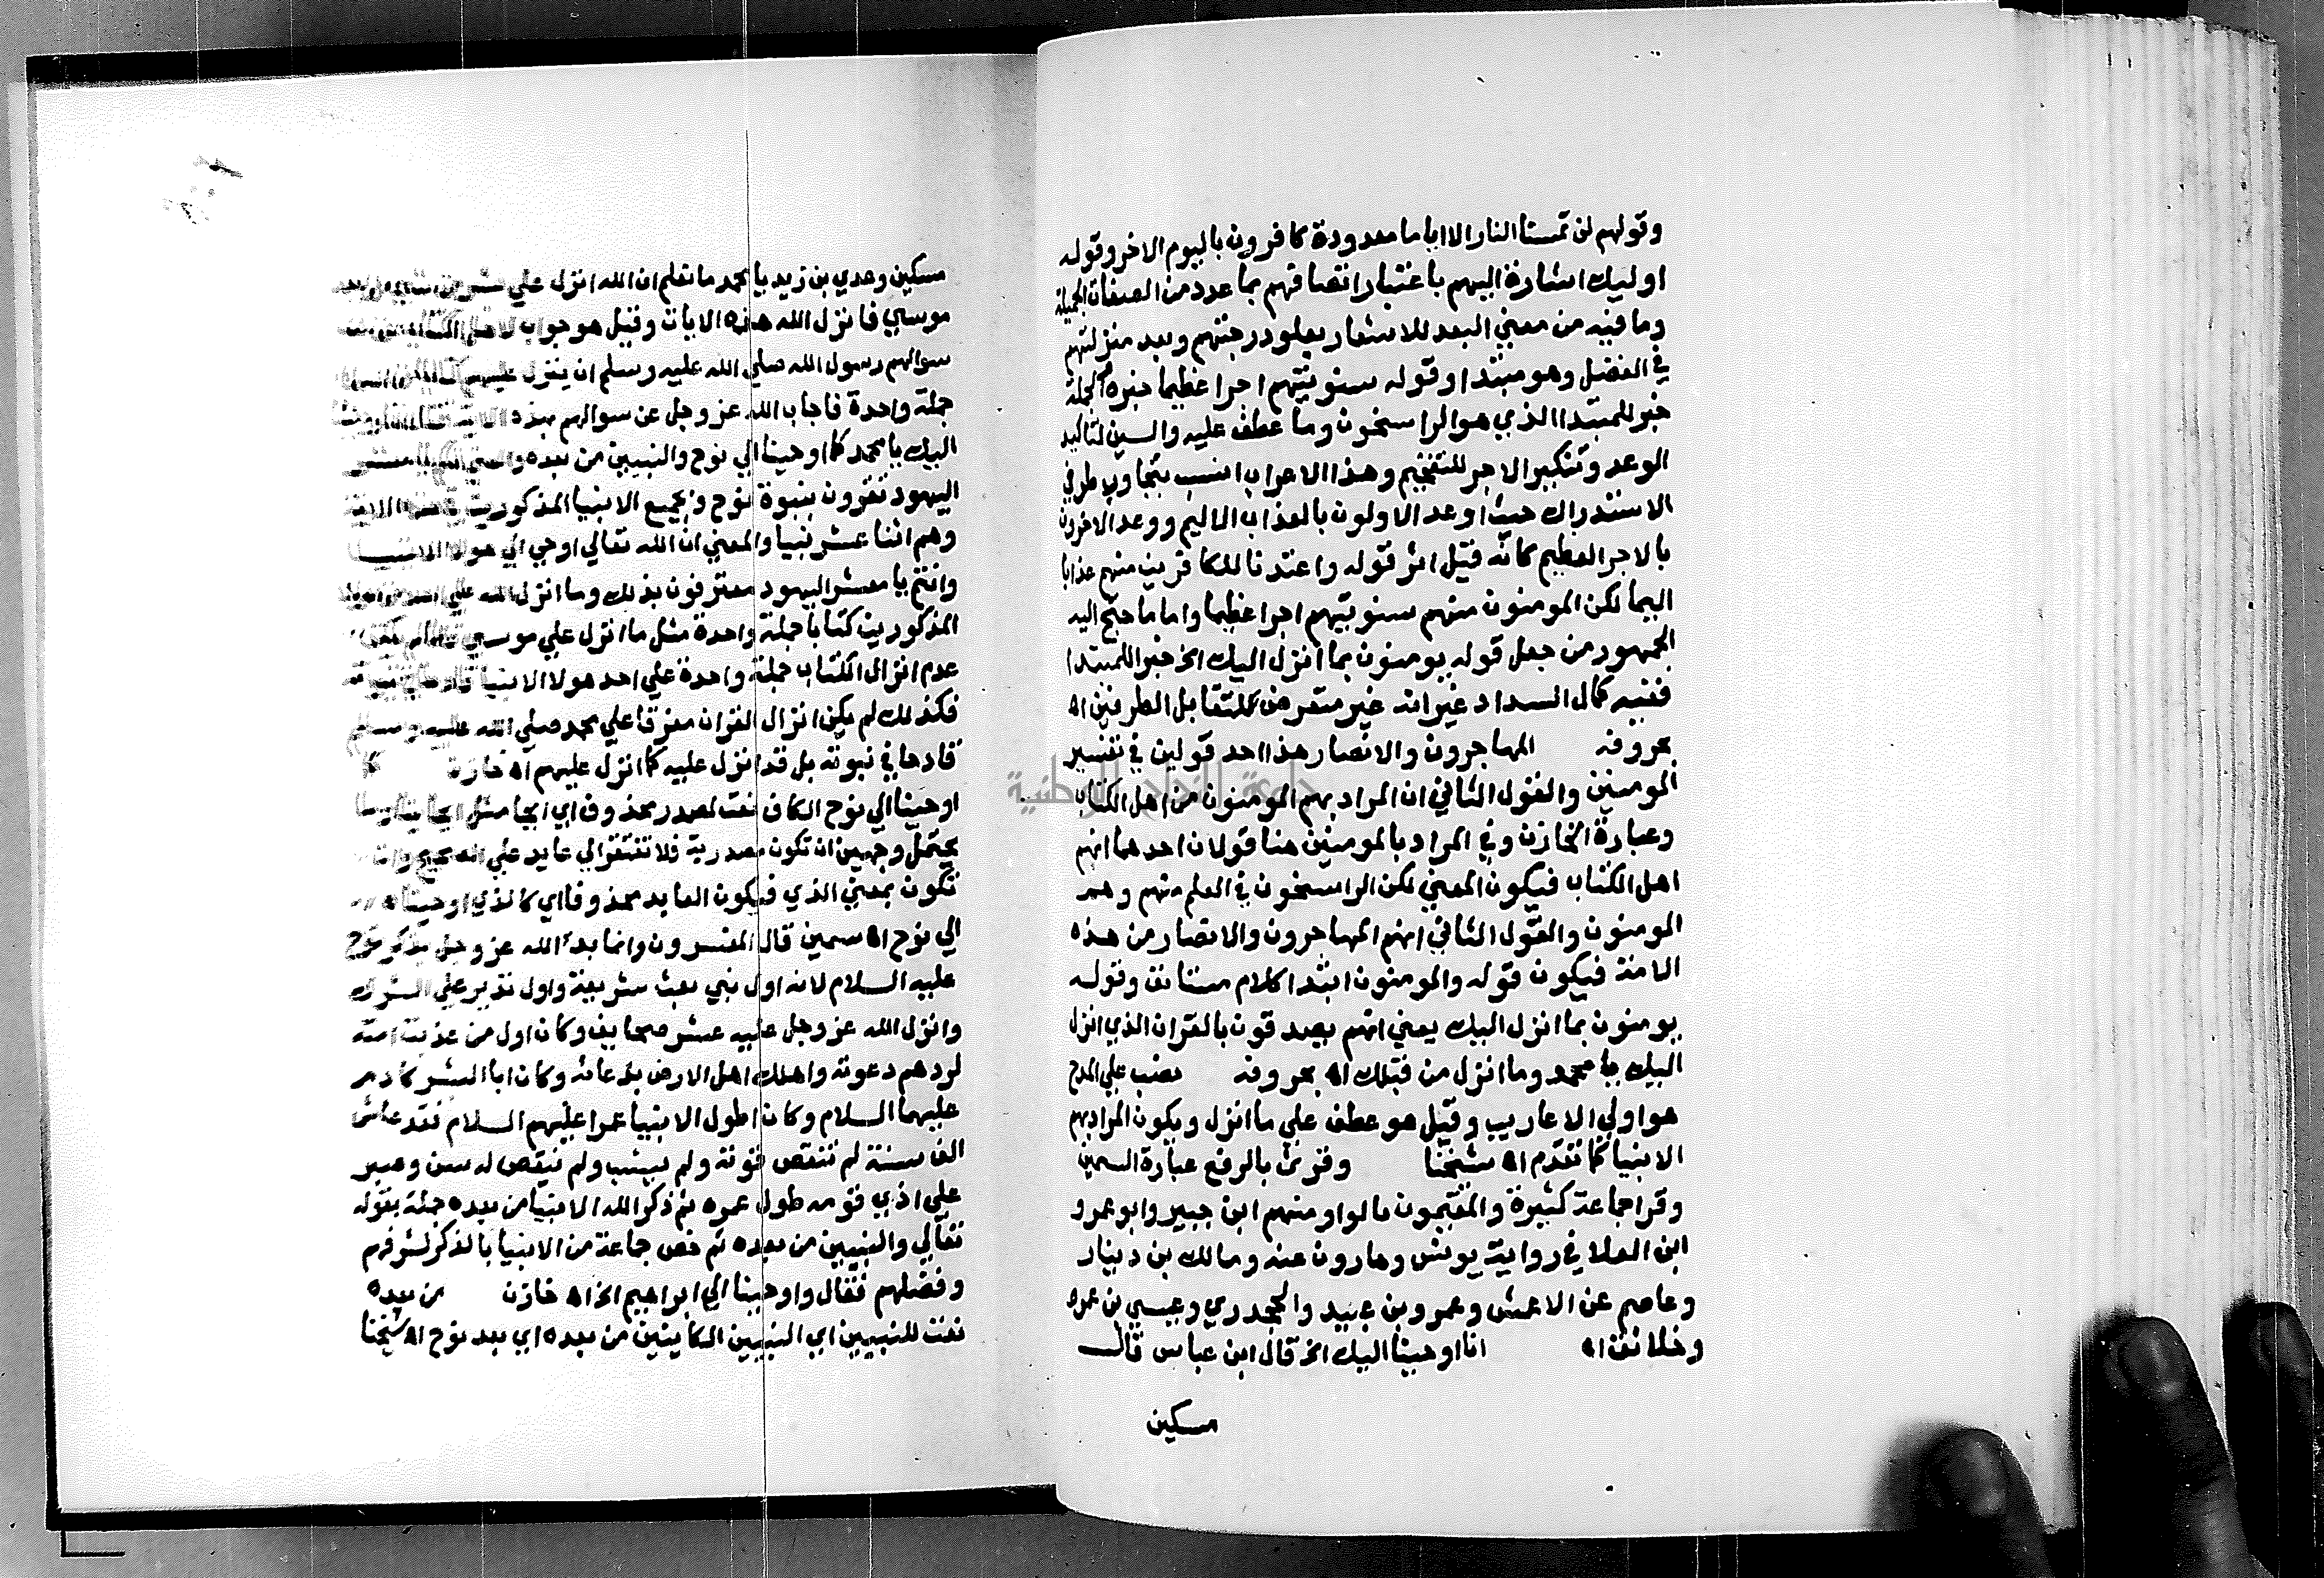 وقولهم لن تمسنا النار الا اياما معدودة كافرون باليوم الاخر وقوله
اوليك اشارة اليهم باعتبار اتصافهم بما عدد من الصفات الجميلة
وما فيه من معني البعد للاشعار بعلو درجتهم وبعد منزلتهم
في الفضل وهو مبتدا وقوله سنوتيهم اجرا عظيما خبره والجملة
خبر للمبتدا الذي هو الراسخون وما عطف عليه والسين لتاكيد
الوعد وتنكير الاجر للتفخيم وهذا الاعراب انسب بتجاوب طرفي
الاستدراك حيث اوعد الاولون بالعذاب الاليم ووعد الاخرون
بالاجر العظيم كانه قيل اثر قوله واعتدنا للكافرين منهم عذابا
اليما لكن المومنون منهم سنوتيهم اجرا عظيما واما ما جنح اليه
الجمهور من جعل قوله يومنون بما انزل اليك الخ خبرا للمبتدا
ففيه كمال السداد غير انه غير متعرض لتقابل الطرفين اه
بحروفه المهاجرون والانصار هذا احد قولين في تفسير
المومنين والقول الثاني ان المراد بهم المومنون من اهل الكتاب
وعبارة الخازن وفي المراد بالمومنين هنا قولان احدهما انهم
اهل الكتاب فيكون المعني لكن الراسخون في العلم منهم وهم
المومنون والقول الثاني انهم المهاجرون والانصار من هذه
الامة فيكون قوله والمومنون ابتدا كلام مستانف وقوله
يومنون بما انزل اليك يعني انهم يصدقون بالقران الذي انزل
اليك يا محمد وما انزل من قبلك اه بحروفه نصب علي المدح
هو اولي الاعاريب وقيل هو عطف علي ما انزل ويكون المراد بهم
الانبيا كما تقدم اه شيخنا وقري بالرفع عبارة السمين
وقرا جماعة كثيرة والمقيمون بالواو منهم ابن جبير وابو عمرو
ابن العلا في رواية يونس وهارون عنه ومالك بن دينار
وعاصم عن الاعمش وعمرو بن عبيد والجحدري وعيسي بن عمر
وخلائق اه انا اوحينا اليك الخ قال ابن عباس قال
مسكين
مسكين وعدي بن زيد يا محمد ما نعلم ان الله انزل علي بشر من شي من بعد
موسي فانزل الله هذه الايات وقيل هو جواب لاهل الكتاب عن
سوالهم رسول الله صلي الله عليه وسلم ان ينزل عليهم كتابا من السما
جملة واحدة فاجاب الله عز وجل عن سوالهم بهذه الاية فقال انا اوحينا
اليك يا محمد كما اوحينا الي نوح والنبيين من بعده والمعني انكم يا معشر
اليهود تقرون بنبوة نوح وبجميع الانبيا المذكورين في هذه الاية
وهم اثنا عشر نبيا والمعني ان الله تعالي اوحي الي هولا الانبيا
وانتم يا معشر اليهود معترفون بذلك وما انزل الله علي احد من هولا
المذكورين كتابا جملة واحدة مثل ما انزل علي موسي فلما لم يكن
عدم انزال الكتاب جملة واحدة علي احد هولا الانبيا قادحا في نبوته
فكذلك لم يكن انزال القران مفرقا علي محمد صلي الله عليه وسلم
قادحا في نبوته بل قد انزل عليه كما انزل عليهم اه خازن كما
اوحينا الي نوح الكاف نعت لمصدر محذوف اي ايحا مثل ايحاينا وما
يحتمل وجهين ان تكون مصدرية فلا تفتقر الي عايد علي الصحيح وان
تكون بمعني الذي فيكون العايد محذوفا اي كالذي اوحيناه
الي نوح اه سمين قال المفسرون وانما بدا الله عز وجل بذكر نوح
عليه السلام لانه اول نبي بعث بشريعة واول نذير علي الشرك
وانزل الله عز وجل عليه عشر صحايف وكان اول من عذبت امته
لردهم دعوته واهلك اهل الارض بدعائه وكان ابا البشر كادم
عليهما السلام وكان اطول الانبيا عمرا عليهم السلام فقد عاش
الف سنة لم تنقص قوته ولم يشب ولم ينقص له سن وصبر
علي اذي قومه طول عمره ثم ذكر الله الانبيا من بعده جملة بقوله
تعالي والنبيين من بعده ثم خص جماعة من الانبيا بالذكر لشرفهم
وفضلهم فقال واوحينا الي ابراهيم الخ اه خازن من بعده
نعت للنبيين اي النبيين الكاينين من بعده اي بعد نوح اه شيخنا